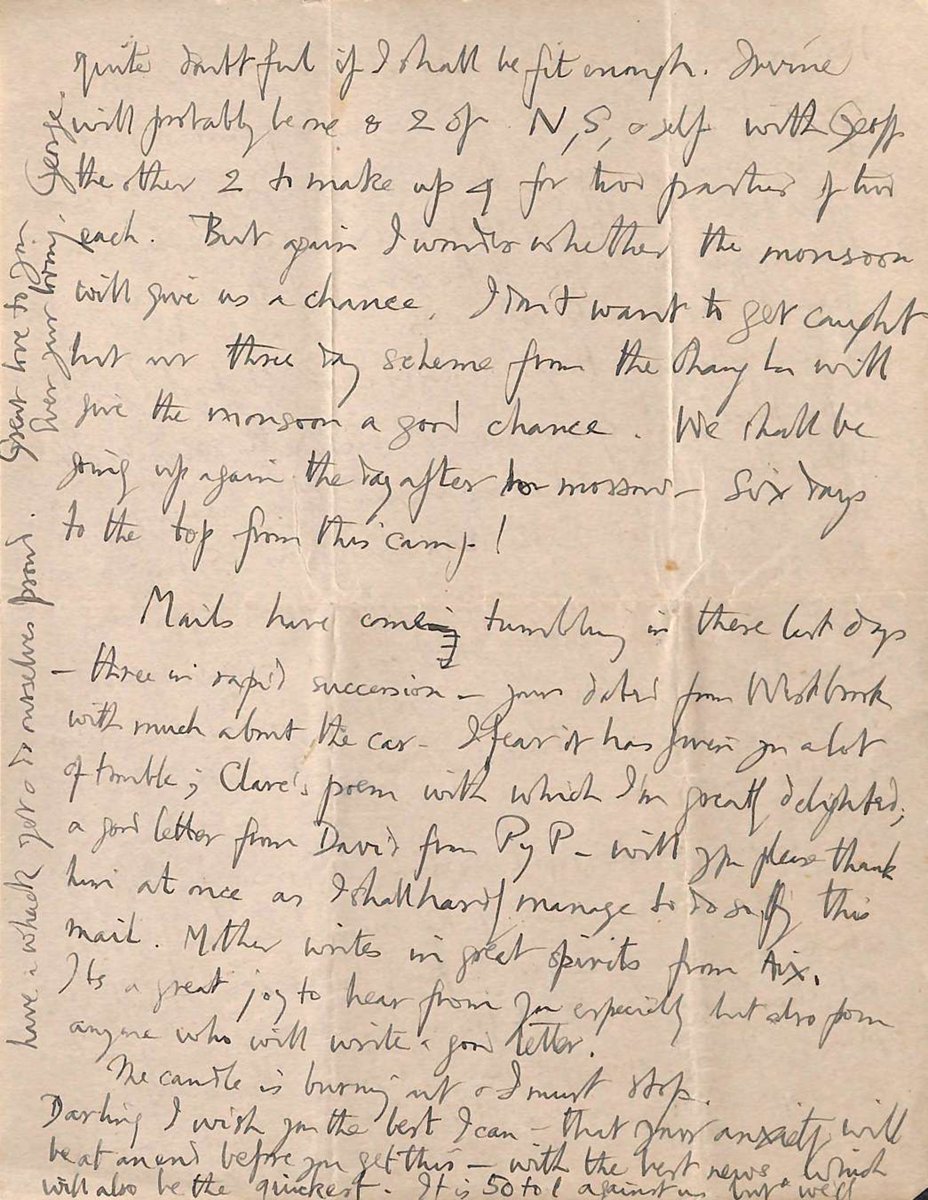 quite doubtful if I shall be fit enough. Irvine
will probably be one & 2 of N, S, & self with Geoff
the other 2 to make up 4 for two parties of two
each. But again I wonder whether the monsoon
will give us a chance. I don't want to get caught
but our three day scheme from the Chang La will
give the monsoon a good chance. We shall be
going up again the day after to morrow – Six days
to the top from this camp!
Mails have come tumbling in these last days
– three in rapid succession – yours dated from Westbrook
with much about the car – I fear it has given you a lot
of trouble; Clare's poem with which I'm greatly delighted;
a good letter from David from P y P – will you please thank
him at once as I shall hardly manage to do so by this
mail. Mother writes in great spirits from Aix.
Its a great joy to hear from you especially but also from
anyone who will write a good letter.
The candle is burning out & I must stop.
Darling I wish you the best I can – that your anxiety will
be at an end before you get this – with the best news. which
will also be the quickest. It is 50 to 1 against us but we'll
have a whack yet & do ourselves proud. Great love to you.
Ever your loving, George.